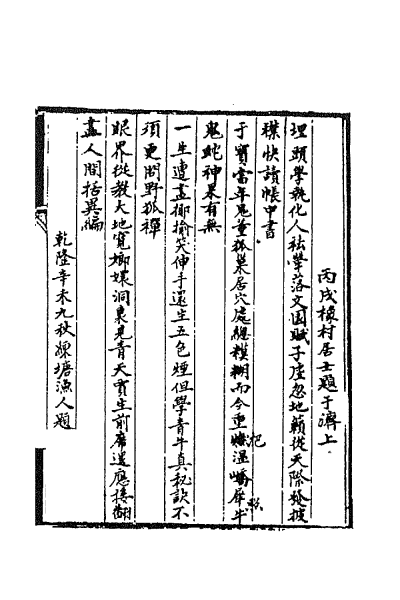 丙戌橡村居士題于濟上
埋頭學執化人袪犖落文園賦子虛忽地籟從天際發披
襟快讀帳中書
于寶當年鬼董狐巢居穴處總模糊而今重燃溫嶠犀牛
把
鬼蛇神果有無
一生遭盡揶揄笑伸手還生五色煙但學青牛真秘訣不
須更問野狐禪
眼界從教大地寬嫏嬛洞裏見青天賈生前席還應接翻
盡人間括異編
乾隆辛未九秋練塘漁人題